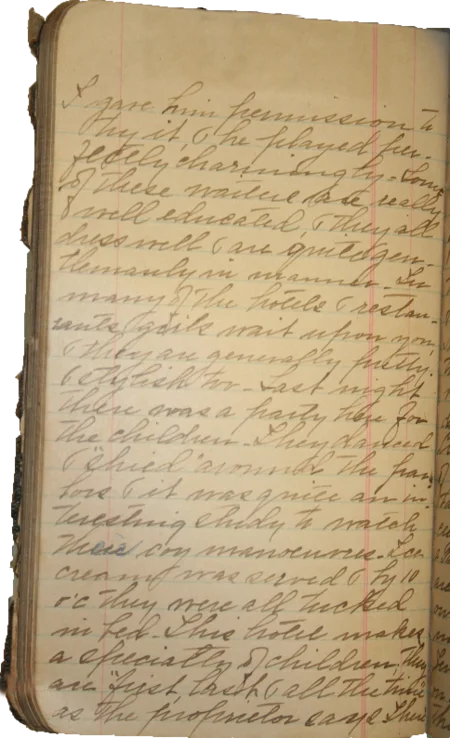 I gave him permission to
try it, & he played per-
fectly charmingly. Some
of these waiters are really
& well educated, & they all
dress well & are quite gen-
tlemanly in manner. In
many of the hotels & restau-
rants girls wait upon you,
& they are generally pretty
& stylish too. Last night
there was a party here for
the children. They danced
& "shied" around the par-
lors & it was quite an in-
teresting study to watch
their coy manoeuvres. Ice
cream was served & by 10
o'c they were all tucked
in bed. This hotel makes
a specialty of children, they
are "first, last, & all the time"
as the proprietor says. There